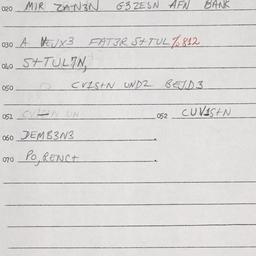 020 MIR ZAN3N G3ZESN AFN BANK
030 A VEJX3 FAT3R S+TUL %812
040 S+TUL7N,
050 CVISTN UND2 BEJD3
051 052 CUV1S+N
060 DEMB3N3
070 PO,RENC+